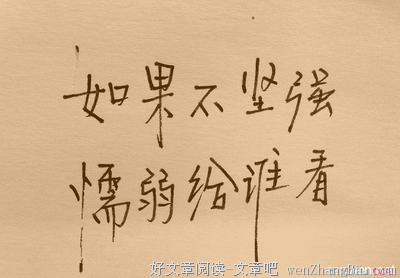 如果不坚强
懦弱给谁看
好文章阅读-文章吧 wenZhangBa.net